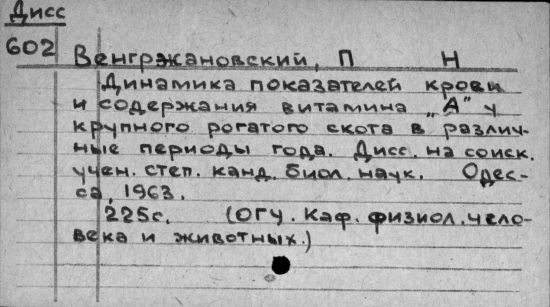 Дисс
602
Венгржановский, П Н
Динамика показателей крови
и содержания витамина „А" у
крупного рогатого скота в различ-
ные периоды года. Дисс. на соиск.
учен. степ. канд. биол. наук. Одес-
са, 1963.
225с. (ОГУ. Каф. физиол. чело-
века и животных.)